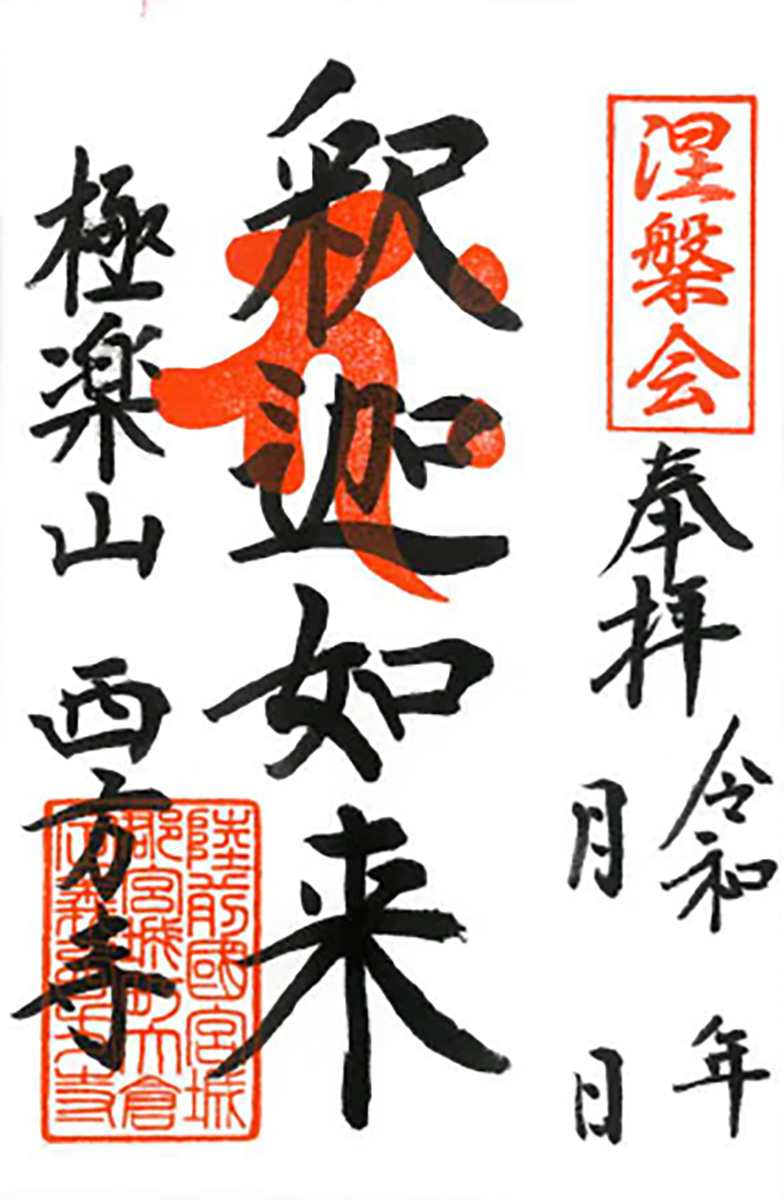 涅槃会
奉拝
令和 年
月 日
釈迦如来
極楽山 西方寺
陸前國宮城
郡宮城町大倉
定義西方寺